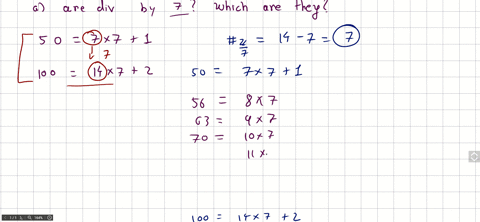 a) are div by 7? which are they?
50 = 7 × 7 + 1
7
100 = 14 × 7 + 2
#ℤ/7 = 14 - 7 = 7
50 = 7 × 7 + 1
56 = 8 × 7
63 = 9 × 7
70 = 10 × 7
11 ×
100 = 14 × 7 + 2